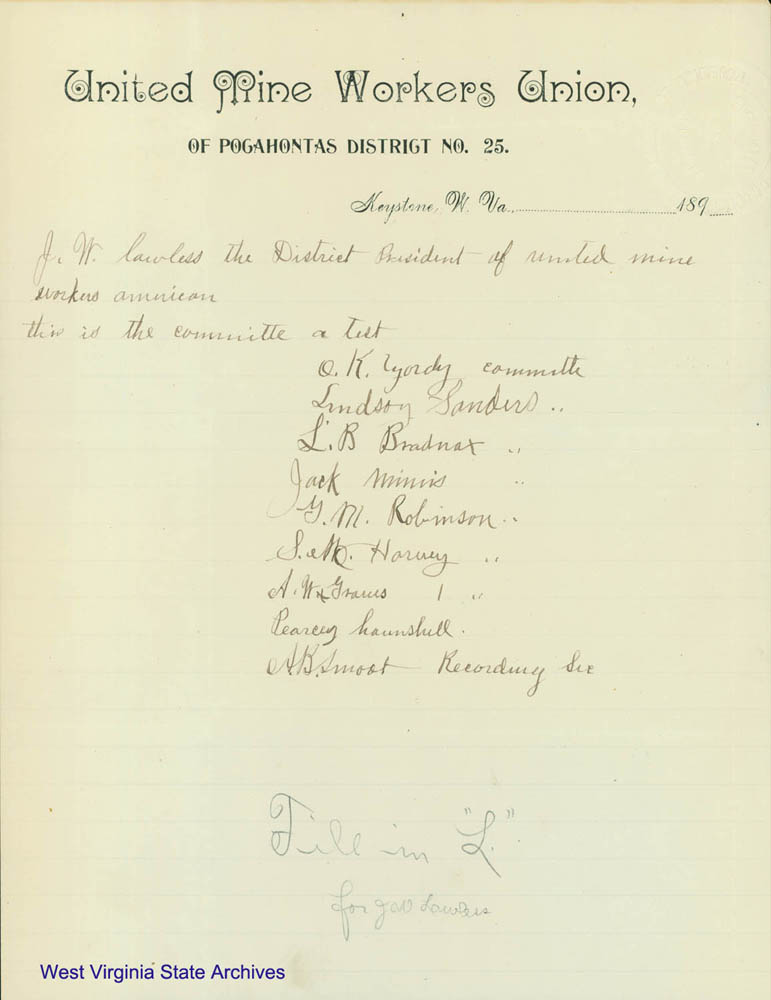 United Mine Workers Union,
OF POCAHONTAS DISTRICT NO. 25.
Keystone, W. Va., 189
J. W. lawless the District President of united mine
workers american
this is the committe a test
O. K. Yordy committe
Lindsay Sanders "
L. B Bradnax "
Jack Mimis "
G. M. Robinson "
S. M. Harvey "
A. W. Graves 1 "
Pearcey hounshell.
A. B. Smoot Recording Sec
Fill in "L."
for J W Lawless
West Virginia State Archives